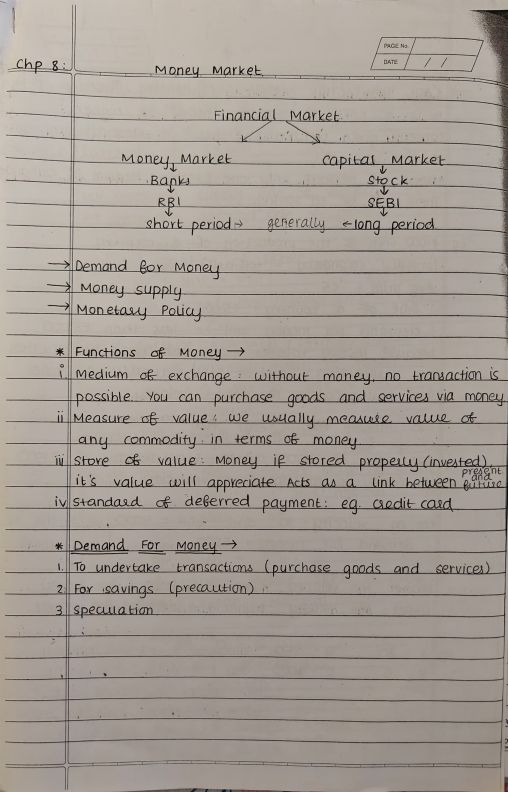 PAGE No.
DATE / /
Chp 8: Money Market.
Financial Market
Money Market Capital Market
Banks Stock
RBI SEBI
short period → generally ← long period
→ Demand for Money
→ Money supply
→ Monetary Policy
* Functions of Money →
i. Medium of exchange: without money, no transaction is
possible. You can purchase goods and services via money
ii Measure of value: we usually measure value of
any commodity in terms of money
iii Store of value: Money if stored properly (invested)
it's value will appreciate Acts as a link between present and future
iv Standard of deferred payment: eg. credit card.
* Demand For Money →
1. To undertake transactions (purchase goods and services)
2. For savings (precaution)
3 Speculation